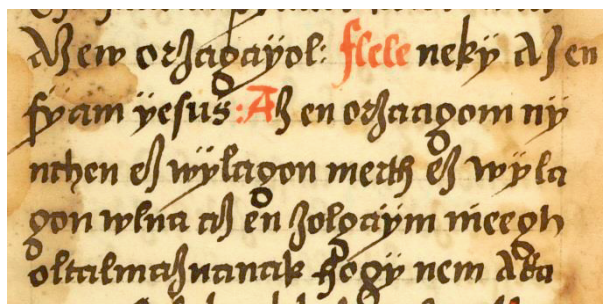 Az ew orzagaÿol: flele nekÿ Az en
fÿam ÿesus: Az en orzaagom nÿ
nchen ez wÿlagon merth ez wÿla
gon wlna az en zolgaÿm meegh
oltalmaznanak hogÿ nem Ada